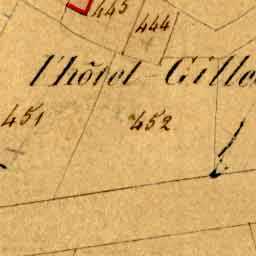 445
444
l'hôtel-Gille
451
452